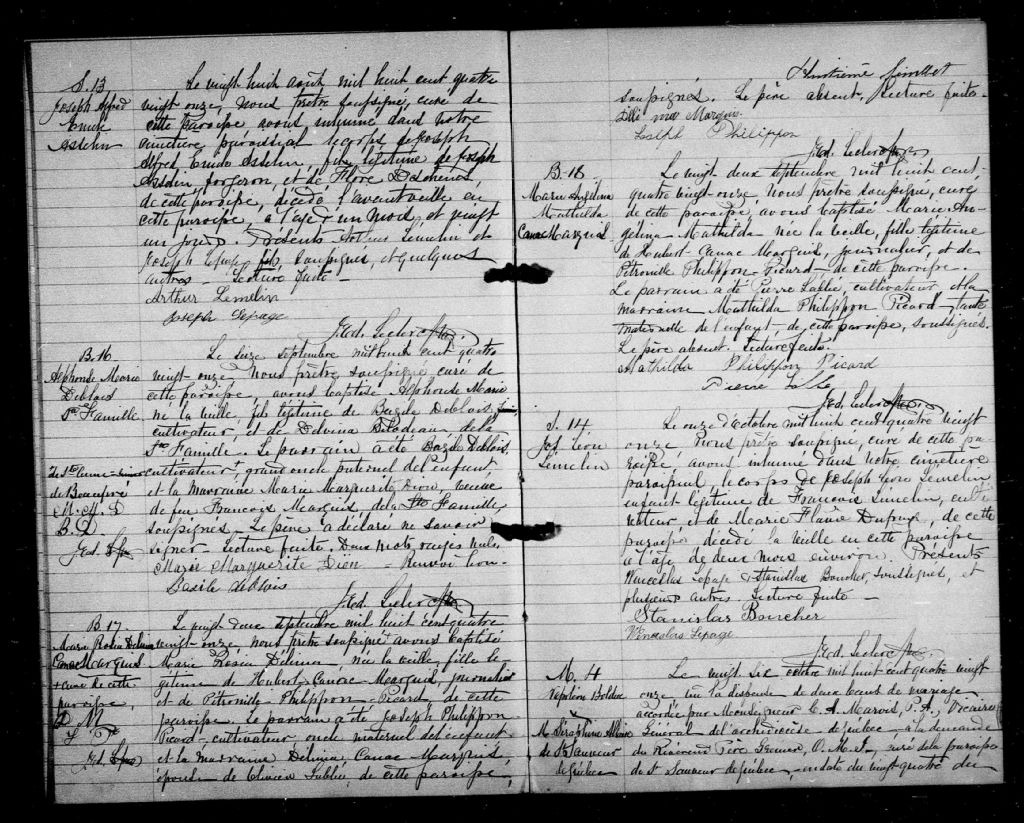 S. 13
Joseph Alfred
Emile
Asselin
Le vingt huit août mil huit cent quatre
vingt onze, nous prêtre soussigné, curé de
cette paroisse avons inhumé dans notre
cimetière paroissial le corps de Joseph
Alfred Asselin, fils légitime de Joseph
Asselin forgeron, et de Flore
de cette paroisse, décédé l'avant veille en
cette paroisse, à l'age d'un mois et vingt
un jours. Présents Arthur Lemelin et
Joseph Lepage soussignés, et quelques
autres - Lecture faite -
Arthur Lemelin
Joseph Lepage
Ged. Leclerc Ptre
B. 16
Alphonse Marie
Deblois
Ste Famille
Le seize septembre mil huit cent quatre
vingt-onze nous prêtre soussigné curé de
cette paroisse, avons baptisé Alphonse Marie
né la veille, fils légitime de Bazile Deblois,
cultivateur, et de Delvina Bilodeau de la
Ste Famille. Le parrain a été Bazile Deblois,
cultivateur + grand oncle paternel de l'enfant
et la marraine Marie Marguerite Dion, veuve
de feu Francois Marquis, de la Ste Famille
soussignés. Le père a déclaré ne savoir
signer - Lecture faite. Deux mots rayés nuls.
Marie Marguerite Dion - Renvoi bon -
Basile deblois
Ged. Leclerc Ptre
de Ste Anne
de Beaupré
M. M. D
B. D
Ged. L Ptre
B. 17
Marie Rosia Delima
Canac Marquis
+ curé de cette
paroisse
D M
J. P
Ged. L Ptre
Le vingt deux septembre mil huit cent quatre
vingt onze nous prêtre soussigné + avons baptisé
Marie Rosia Délima, née la veille, fille lé-
gitime de Hubert Canac Marquis, journalier
et de Pétronille Philippon-Picard de cette
paroisse. Le parrain a été Joseph Philippon
Picard cultivateur oncle maternel de l'enfant
et la marraine Délima Canac Marquis
épouse de Olivier Lablée de cette paroisse,
Huitième feuillet
soussignés. Le père absent. Lecture faite.
Déli ma Marquis
Joseph Philippon
Ged. Leclerc Ptre
B-18
Marie Angélina
Mathilda
Canac Marquis
Le vingt deux septembre mil huit cent
quatre vingt-onze nous prêtre soussigné, curé
de cette paroisse, avons baptisé Marie An-
gélina-Mathilda née la veille, fille légitime
de Hubert-Canac Marquis, journalier, et de
Pétronille Philippon-Picard - de cette paroisse.
Le parrain a été Pierre Lablée, cultivateur et la
marraine Mathilda Philippon Picard - tante
maternelle de l'enfant, de cette paroisse, soussignés.
Le père absent. Lecture faite.
Mathilda Philippon Picard
Pierre
Ged. Leclerc Ptre
S. 14
Jos. Léon
Lemelin
Le onze d'octobre mil huit cent quatre vingt
onze, nous prêtre soussigné, curé de cette pa-
roisse, avons inhumé dans notre cimetière
paroissial, le corps de Joseph Léon Lemelin
enfant légitime de François Lemelin, culti-
vateur, et de Marie Flavie Dupuis, de cette
paroisse décédé la veille en cette paroisse
à l'âge de deux mois environ. Présents
Wenceslas Lepage & Stanislas Boucher, soussignés, et
plusieurs autres. Lecture faite -
Stanislas Boucher
Venceslas Lepage
Ged. Leclerc Ptre
M. 4
Napoléon Bolduc
&
M. Séraphine Albina
de St Sauveur
de Québec
Le vingt six octobre mil huit cent quatre vingt
onze vu la dispense de deux bans de mariage
accordée par Monseigneur C. A. Marois, P. A., Vicaire
Général de l'archidiocèse de Québec - à la demande
du Révérend Père Grenier, O. M. I. curé de la paroisse
de St Sauveur de Québec, en date du vingt quatre du